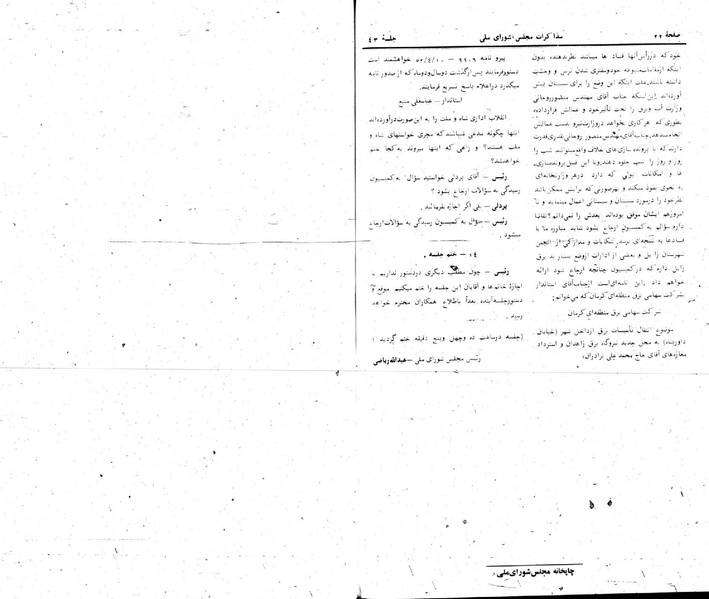 صفحهٔ ۲۲
مذاکرات مجلس شورای ملی
جلسهٔ ۴۳
خود که در رأس آنها فساد ها میبینند نظر بدهند، بدون
داشته باشند، علت اینکه این وضع را برای سیستان پیش
آورده‌اند این است که جناب آقای مهندس منصور روحانی
وزارت آب و برق را تحت تأثیر خود و عمالش قرار داده
بطوری که هر کاری بخواهد در وزارت نیرو بدست عمالش
انجام میدهد، جناب آقای مهندس منصور روحانی بقدری قدرت
دارند که با پرونده سازی‌های خلاف واقع میتوانند شب را
روز و روز را شب جلوه دهند و با این قبیل پرونده سازی
ها و امکانات پولی که دارد در هر وزارتخانه‌ای
به نحوی نفوذ میکند و بهر صورتی که برایش ممکن باشد
نظر خود را در مورد سیستان و سیستانی اعمال مینماید و تا
امروز هم ایشان موفق بوده‌اند بعدش را نمی‌دانم؟ تقاضا
دارم سؤالم به کمسیون ارجاع بشود شاید مبارزه ما با
فسادها به نتیجه‌ای برسد، شکایات و مدارکی از انجمن
شهرستان زابل و بعضی از ادارات از وضع بسیار بد برق
زابل دارم که در کمیسیون چنانچه ارجاع شود ارائه
خواهم داد. این نامه‌ای است از جناب آقای استاندار
شرکت سهامی برق منطقه‌ای کرمان که میخوانم:
شرکت سهامی برق منطقه‌ای کرمان
موضوع انتقال تأسیسات برق از داخل شهر (خیابان
داورپناه) به محل جدید نیروگاه برق زاهدان و استرداد
مغازه‌های آقای حاج محمد علی برادران،
پیرو نامه ۹۹۰۹ – ۵۲/۴/۱۰ خواهشمند است
دستور فرمایند پس از گذشت دو سال و دو ماه که از صدور نامه
میگذرد در اعلام پاسخ تسریع فرمایند.
استاندار –
انقلاب اداری شاه و ملت را به این صورت در آورده‌اند
اینها چگونه مدعی میباشند که مجری خواستهای شاه و
ملت هستند؟ و راهی که اینها میروند به کجا ختم
خواهد شد؟
رئیس – آقای یزدلی خواستید سؤال به کمیسیون
رسیدگی به سؤالات ارجاع بشود ؟
یزدلی – بلی اگر اجازه بفرمائید .
رئیس – سؤال به کمیسیون رسیدگی به سؤالات ارجاع
میشود .
۴: – ختم جلسه .
رئیس – چون مطلب دیگری در دستور نداریم با
اجازه خانم ها و آقایان این جلسه را ختم میکنیم موقع و
دستور جلسه آینده بعداً باطلاع همکاران محترم خواهد
رسید .
(جلسه در ساعت ده و چهل و پنج دقیقه ختم گردید )
رئیس مجلس شورای ملی – عبدالله ریاضی
چاپخانه مجلس شورای ملی .